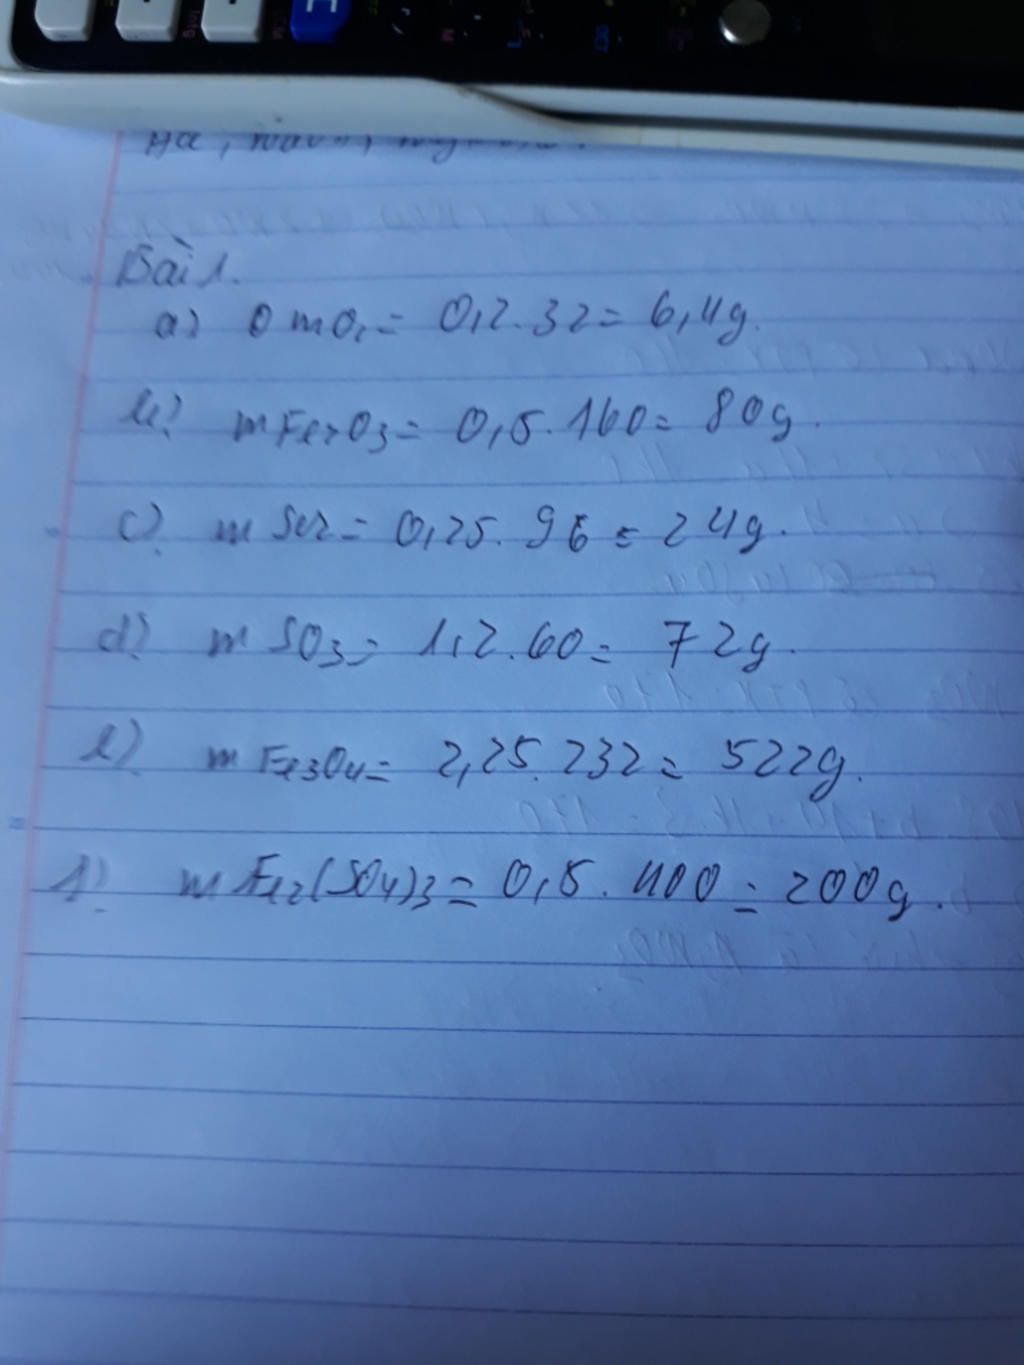 Bài 1.
a) mO2 = 0,2.32 = 6,4g.
b) mFe2O3 = 0,5.160 = 80g.
c) = 0,25.96 = 24g.
d) mSO3 = 1,2.60 = 72g.
e) mFe3O4 = 2,25.232 = 522g.
f) mFe2(SO4)3 = 0,5.400 = 200g.